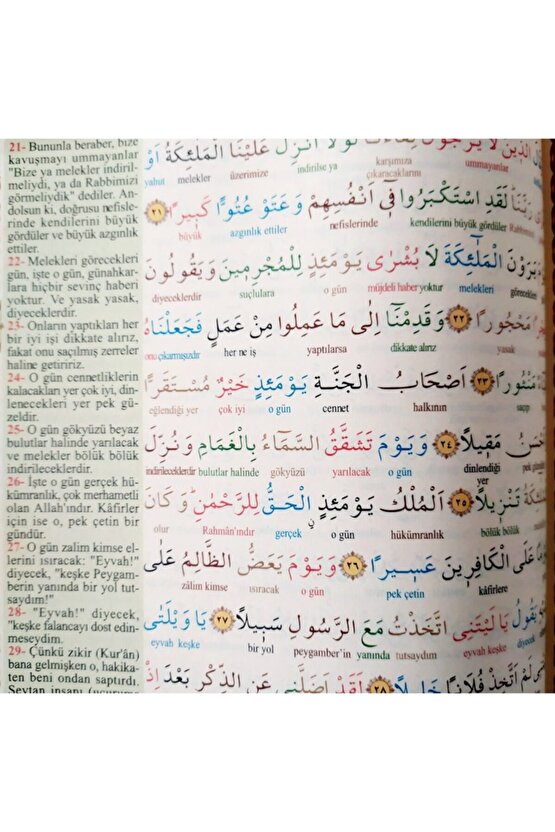 21- Bununla beraber, bize
kavuşmayı ummayanlar
"Bize ya melekler indiril-
meliydi, ya da Rabbimizi
görmeliydik" dediler. An-
dolsun ki, doğrusu nefisle-
rinde kendilerini büyük
gördüler ve büyük azgınlık
ettiler.
22- Melekleri görecekleri
gün, işte o gün, günahkar-
lara hiçbir sevinç haberi
yoktur. Ve yasak yasak,
diyeceklerdir.
23- Onların yaptıkları her
bir iyi işi dikkate alırız,
fakat onu saçılmış zerreler
haline getiririz.
24- O gün cennetliklerin
kalacakları yer çok iyi, din-
lenecekleri yer pek gü-
zeldir.
25- O gün gökyüzü beyaz
bulutlar halinde yarılacak
ve melekler bölük bölük
indirileceklerdir.
26- İşte o gün gerçek hü-
kümranlık, çok merhametli
olan Allah'ındır. Kâfirler
için ise o, pek çetin bir
gündür.
27- O gün zalim kimse el-
lerini ısıracak: "Eyvah!"
diyecek, "keşke Peygam-
berin yanında bir yol tut-
saydım!"
28- "Eyvah!" diyecek,
"keşke falancayı dost edin-
meseydim.
29- Çünkü zikir (Kur'ân)
bana gelmişken o, hakika-
ten beni ondan saptırdı.
Şeytan insanı (uçuruma
لَا يَرْجُونَ لِقَاءَنَا لَوْلَا أُنْزِلَ عَلَيْنَا الْمَلٰٓئِكَةُ اَوْ
ummayanlar karşımıza çıkacaklarını indirilse ya üzerimize melekler yahut
رَبَّنَا لَقَدِ اسْتَكْبَرُوا فٖٓى اَنْفُسِهِمْ وَعَتَوْ عُتُوًّا كَبٖيرًا ﴿٢١﴾
Rabbimizi kendilerini büyük gördüler nefislerinde azgınlık ettiler büyük
يَرَوْنَ الْمَلٰٓئِكَةَ لَا بُشْرٰى يَوْمَئِذٍ لِلْمُجْرِمٖينَ وَيَقُولُونَ
görecekleri melekleri müjdeli haber yoktur o gün suçlulara diyeceklerdir
مَحْجُورًا ﴿٢٢﴾ وَقَدِمْنَٓا اِلٰى مَا عَمِلُوا مِنْ عَمَلٍ فَجَعَلْنَاهُ
yasak dikkate alırız yaptılarsa her ne iş onu çıkarmışızdır
مَنْثُورًا ﴿٢٣﴾ اَصْحَابُ الْجَنَّةِ يَوْمَئِذٍ خَيْرٌ مُسْتَقَرًّا
saçıp halkının cennet o gün çok iyi eğlendiği yer
مَقٖيلًا ﴿٢٤﴾ وَيَوْمَ تَشَقَّقُ السَّمَٓاءُ بِالْغَمَامِ وَنُزِّلَ
pek güzel dinlendiği yer o gün yarılacak gökyüzü bulutlar halinde indirileceklerdir
تَنْزٖيلًا ﴿٢٥﴾ اَلْمُلْكُ يَوْمَئِذٍ الْحَقُّ لِلرَّحْمٰنِ وَكَانَ
bölük bölük hükümranlık o gün gerçek Rahmân'ındır olur
عَلَى الْكَافِرٖينَ عَسٖيرًا ﴿٢٦﴾ وَيَوْمَ يَعَضُّ الظَّالِمُ عَلٰى
kâfirlere pek çetin o gün ısıracak zâlim kimse
يَقُولُ يَا لَيْتَنِى اتَّخَذْتُ مَعَ الرَّسُولِ سَبٖيلًا ﴿٢٧﴾ يَا وَيْلَتٰى
diyecek eyvah keşke tutsaydım yanında peygamber'in bir yol eyvah keşke
لَمْ اَتَّخِذْ فُلَانًا خَلٖيلًا ﴿٢٨﴾ لَقَدْ اَضَلَّنٖى عَنِ الذِّكْرِ بَعْدَ اِذْ